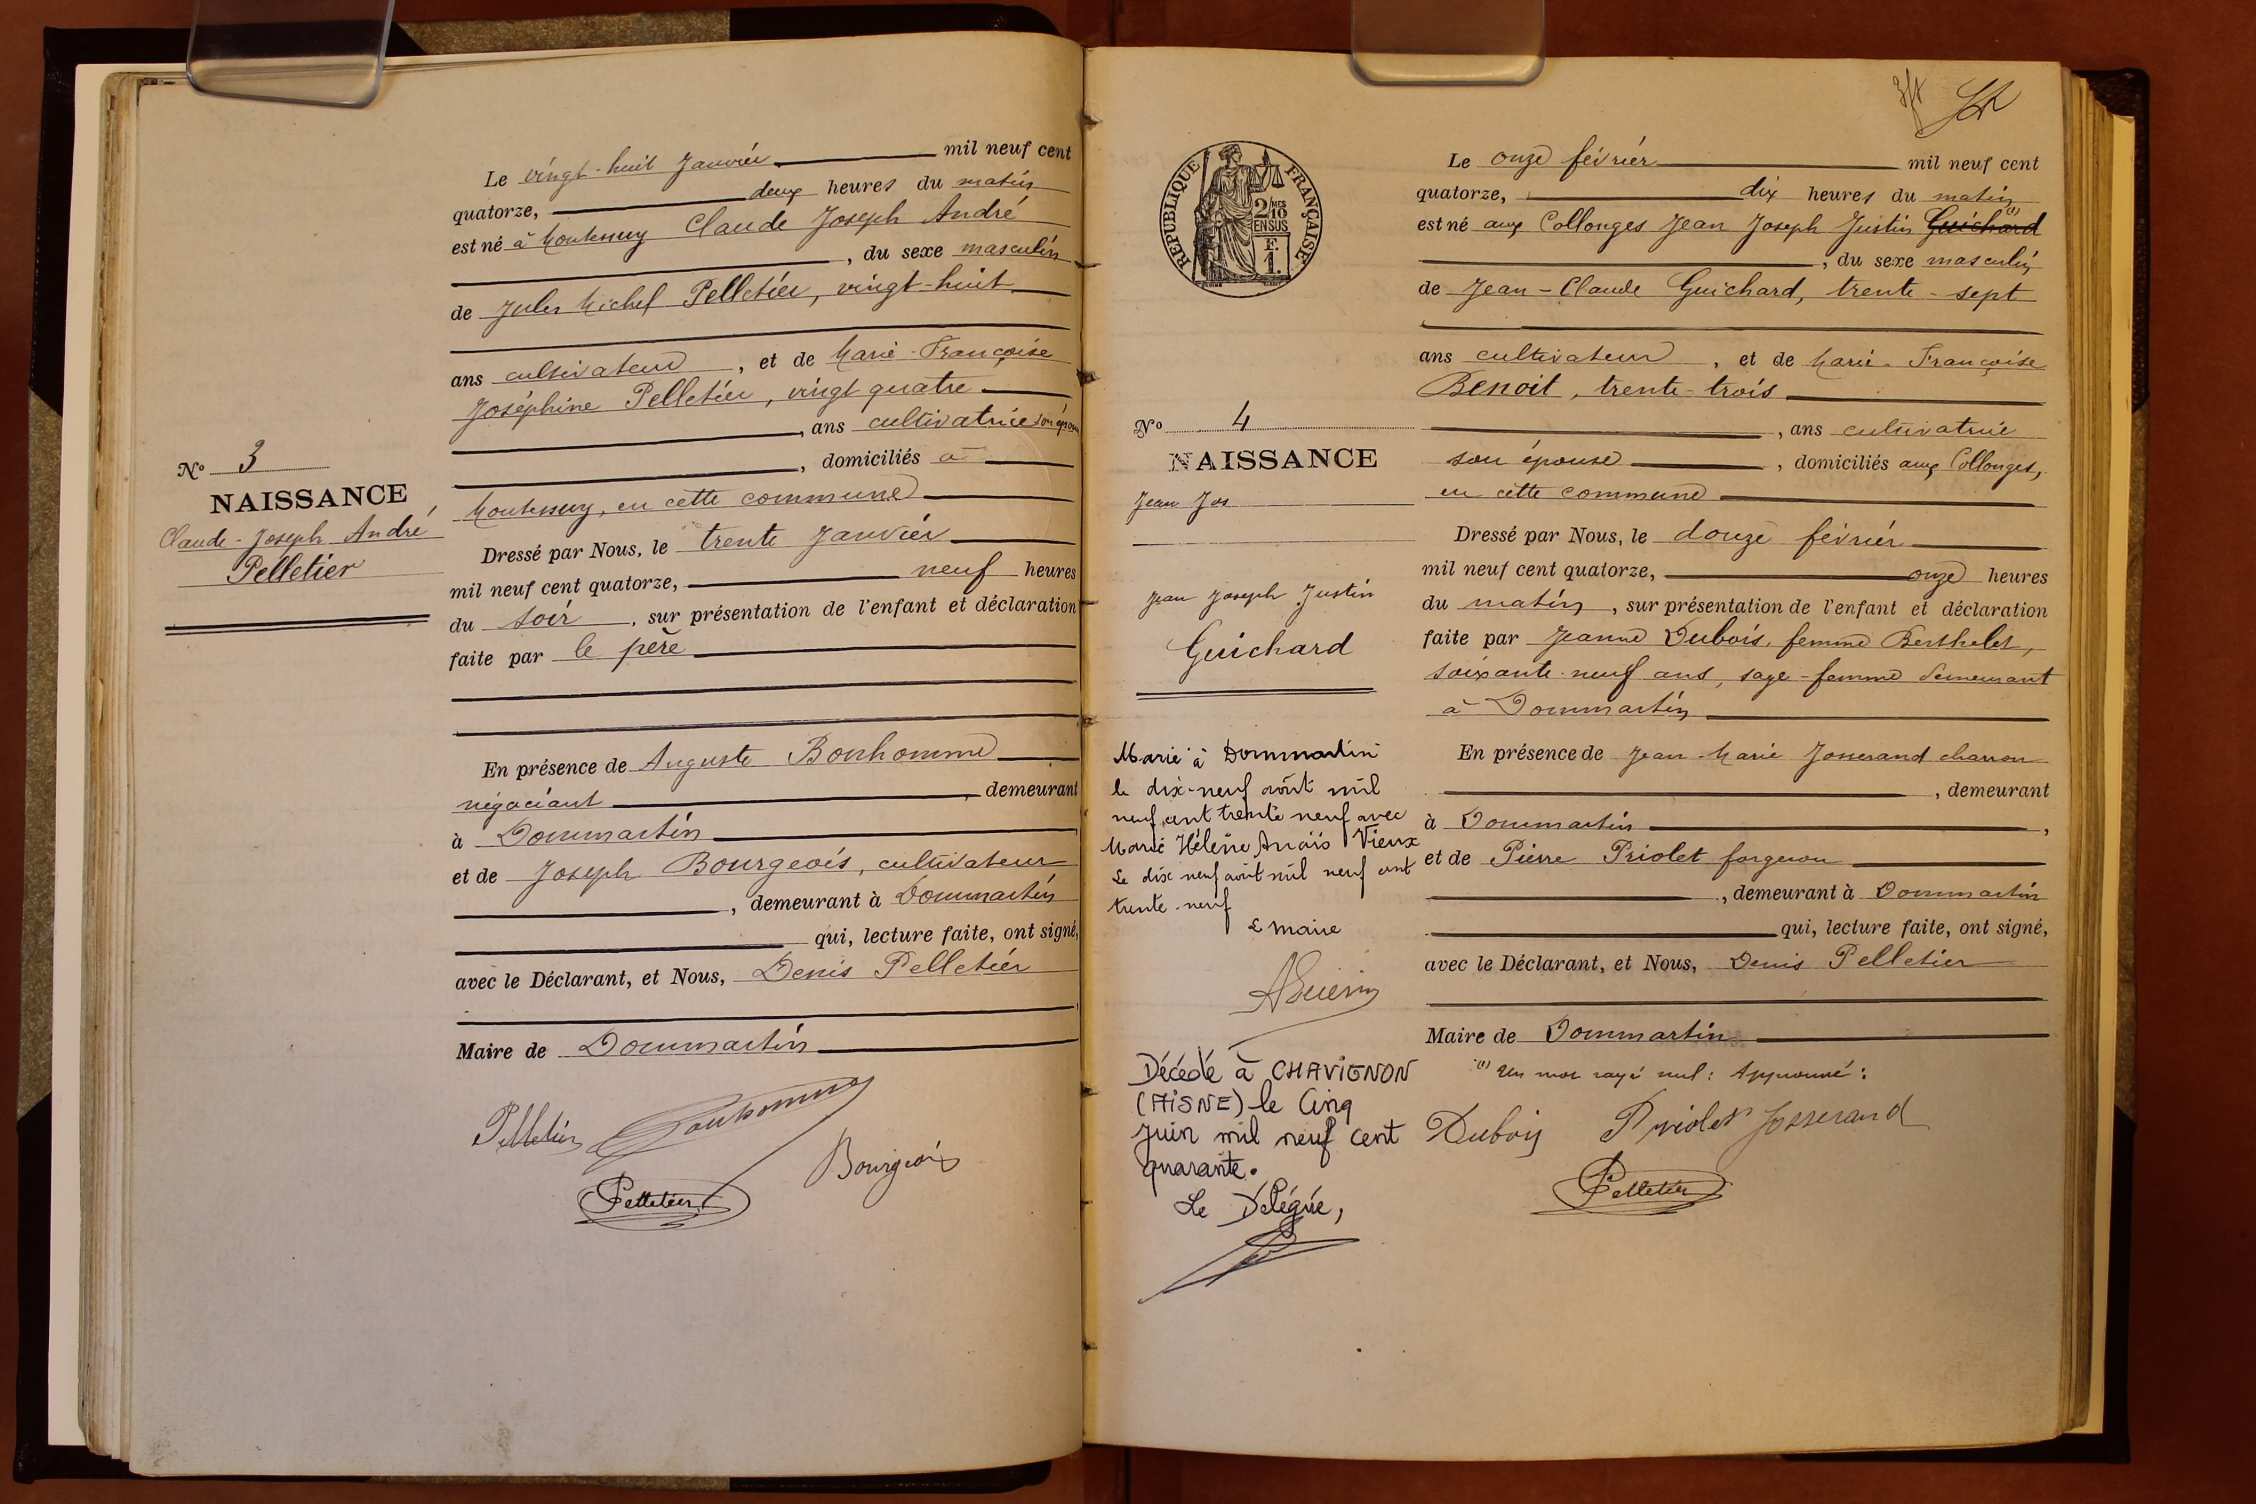 Le vingt-huit Janvier mil neuf cent
quatorze, deux heures du matin
est né à Montemuy Claude Joseph André
, du sexe masculin
de Jules Michel Pelletier, vingt-huit
ans cultivateur, et de Marie-Françoise
Joséphine Pelletier, vingt quatre
, ans cultivatrice son épouse
, domiciliés à
Montemuy, en cette commune
Dressé par Nous, le trente Janvier
mil neuf cent quatorze, neuf heures
du soir, sur présentation de l'enfant et déclaration
faite par le père
En présence de Auguste Bonhomme
négociant, demeurant
à Dommartin
et de Joseph Bourgeois, cultivateur
, demeurant à Dommartin
qui, lecture faite, ont signé,
avec le Déclarant, et Nous, Denis Pelletier
Maire de Dommartin
Pelletier Bonhomme
Bourgeois
Pelletier
No 3
NAISSANCE
Claude-Joseph André
Pelletier
REPUBLIQUE FRANÇAISE
2/10 MES
EN SUS
F.
1.
No 4
NAISSANCE
Jean Jos
Jean Joseph Justin
Guichard
Marié à Dommartin
le dix-neuf août mil
neuf cent trente neuf avec
Marie Hélène Anaïs Vieux
Le dix neuf août mil neuf cent
trente-neuf
Le maire
Décédé à CHAVIGNON
(AISNE) le Cinq
Juin mil neuf cent
quarante.
Le Délégué,
Le onze février mil neuf cent
quatorze, dix heures du matin
est né aux Collonges Jean Joseph Justin Guichard (1)
, du sexe masculin
de Jean-Claude Guichard, trente-sept
ans cultivateur, et de Marie-Françoise
Benoit, trente-trois
, ans cultivatrice
son épouse, domiciliés aux Collonges,
en cette commune
Dressé par Nous, le douze février
mil neuf cent quatorze, onze heures
du matin, sur présentation de l'enfant et déclaration
faite par Jeanne Dubois, femme Berthelet,
soixante-neuf ans, sage-femme demeurant
à Dommartin
En présence de Jean-Marie Josserand charron
, demeurant
à Dommartin,
et de Pierre Priolet forgeron
, demeurant à Dommartin
qui, lecture faite, ont signé,
avec le Déclarant, et Nous, Denis Pelletier
Maire de Dommartin
(1) Un mot rayé nul: Approuvé:
Dubois Priolet Josserand
Pelletier